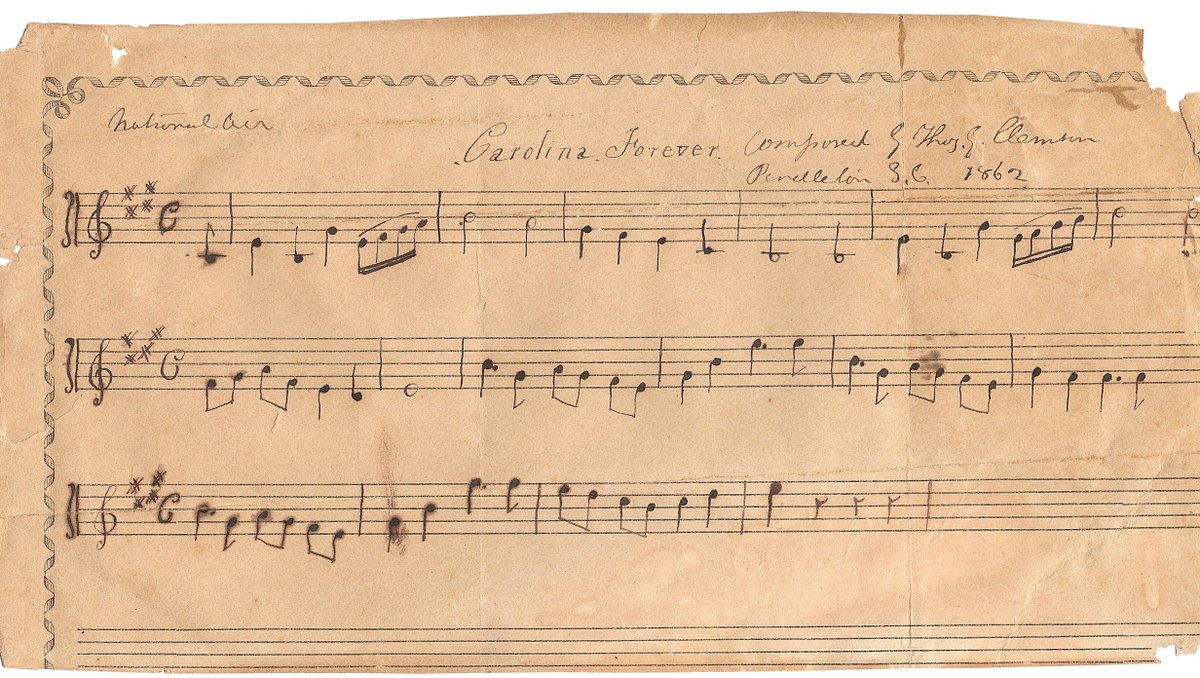 National Air
Carolina Forever. Composed by Thos. G. Clemson
Pendleton S.C. 1862